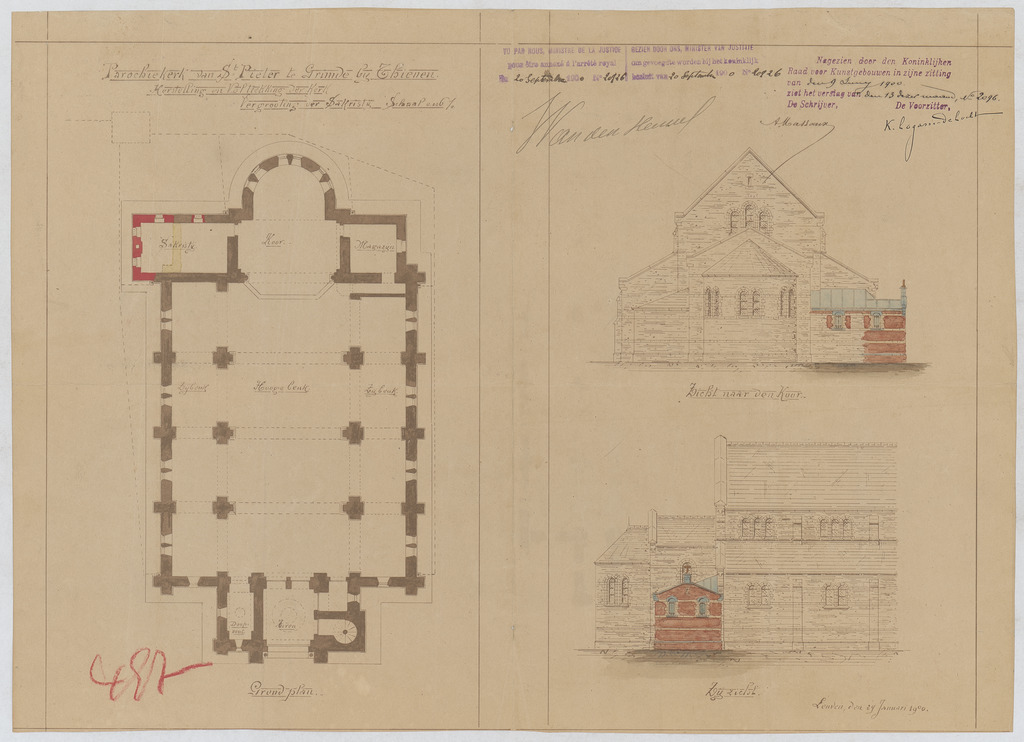 Parochiekerk van St Pieter te Grimde bij Thienen.
Herstelling en Verfraaing der Kerk
Vergrooting der Sakristij Schaal
VU PAR NOUS, MINISTRE DE LA JUSTICE
pour être annexé à l'arrêté royal
du 20 September 1900 No 2026
GEZIEN DOOR ONS, MINISTER VAN JUSTITIE
om gevoegd te worden bij het koninklijk
besluit van 20 September 1900 No 2026
Nagezien door den Koninklijken
Raad voor Kunstgebouwen in zijne zitting
van den 9 Juny 1900
ziet het verslag van den 13 dezer maand, No 2096.
De Schrijver, De Voorzitter,
Sakristij
Koor
Magazyn
Zybeuk
Hoogebeuk
Zybeuk
Toren
Grond plan.
Zicht naar den Koor.
Zij zicht.
487
Leuven, den 27 Januari 1900.